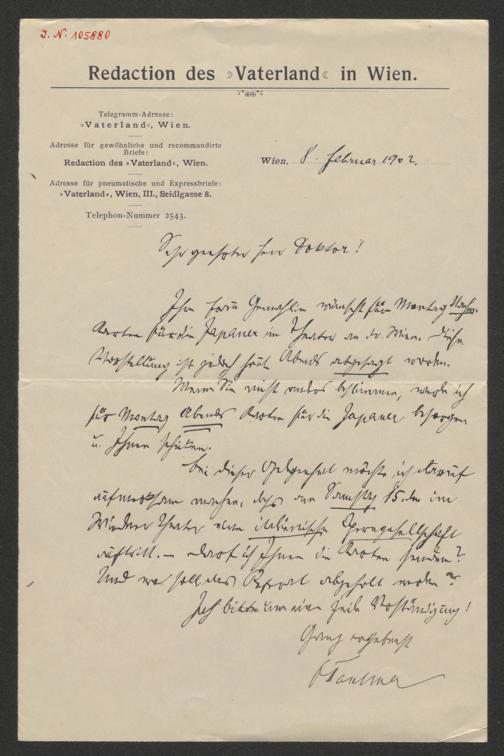 I. N. 105880
Redaction des »Vaterland« in Wien.
Telegramm-Adresse:
»Vaterland«, Wien.
Adresse für gewöhnliche und recommandirte
Briefe:
Redaction des »Vaterland«, Wien.
Adresse für pneumatische und Expressbriefe:
»Vaterland«, Wien, III., Seidlgasse 8.
Telephon-Nummer 2543.
Wien, 8. Februar 1902.
Sehr geehrter Herr Doktor!
Ihre Frau Gemahlin wünscht für Montag
Karten für die Japaner im Theater an der Wien. Diese
Vorstellung ist jedoch heute Abends abgesagt worden.
Wenn Sie nicht anders bestimmen, werde ich
für Montag Abends Karten für die Japaner besorgen
u. Ihnen schicken.
Bei dieser Gelegenheit möchte ich darauf
aufmerksam machen, dass am Samstag 15. im
Wiedner Theater eine italienische Operngesellschaft
auftritt. – Darf ich Ihnen die Karten senden?
Und wo soll das Referat abgeholt werden?
Ich bitte um eine Zeile Verständigung!
Ganz ergebenst